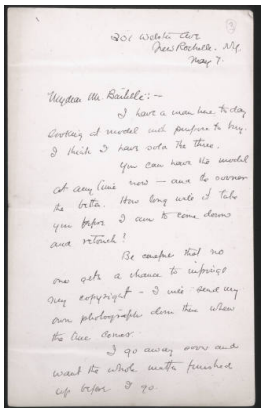 301 Webster Ave
New Rochelle. N.Y.
May 7.
My dear Mr.
I have a man here today
looking at model with purpose to buy.
I think I have sold the three.
You can have the model
at any time now — and the sooner
the better. How long will it take
you before I am to come down
and retouch?
Be careful that no
one gets a chance to infringe
my copyright — I will send my
own photographer down there when
the time comes.
I go away soon and
want the whole matter finished
up before I go.